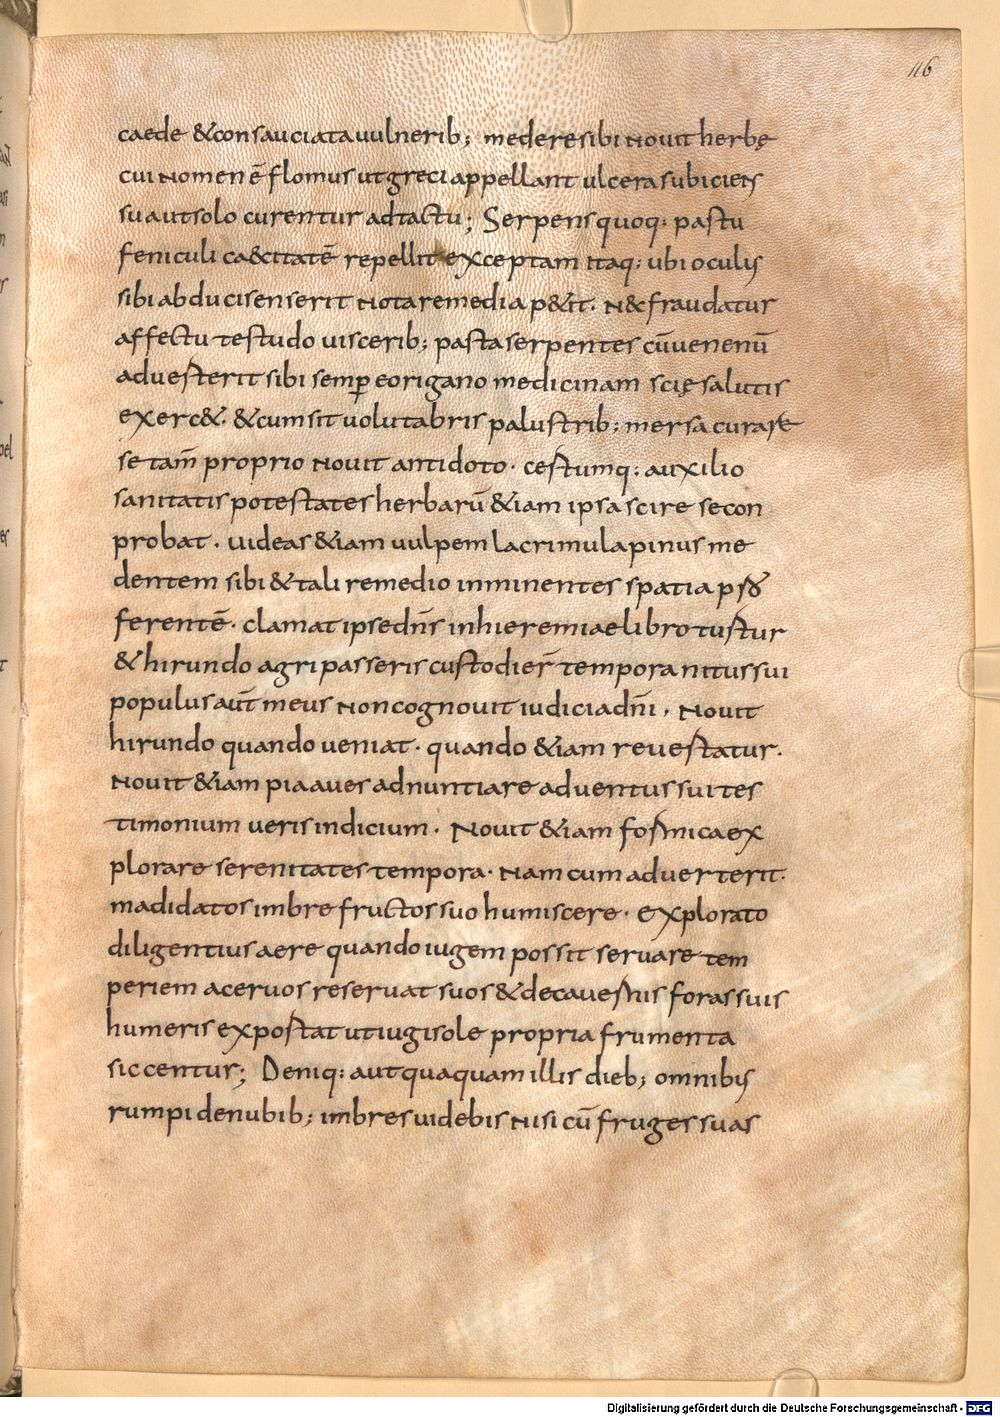 116
caede &consauciatauulnerib; mederesibi nouit herbę
cui nomen ē flomus utgreci appellant ulcera subiciens
suautsolo curentur adtactu; Serpens quoq: pastu
feniculi ca&citatē repellit exceptam itaq: ubi oculis
sibi abducisenserit nota remedia p&it. n&fraudatur
affectu testudo uiscerib; pasta serpentes cūuenenū
aduesterit sibi semp eorigano medicinam scię salutis
exerc&. &cumsit uolutabris palustrib; mersa curare
se tam̄ proprio nouit antidoto. cestumq: auxilio
sanitatis potestates herbarū &iam ipsa scire se con
probat. uideas &iam uulpem lacrimula pinus me
dentem sibi &tali remedio inminentes spatia p
ferentē. clamat ipsedn̄s inhieremiae libro tustur
&hirundo agri passeris custodier̄ tempora nitus sui
populus aut̄ meus non cognouit iudicia dn̄i. nouit
hirundo quando ueniat. quando &iam reuestatur.
nouit &iam pia aues adnuntiare aduentus sui tes
timonium ueris indicium. Nouit &iam formica ex
plorare serenitates tempora. nam cum aduerterit.
madidatos imbre fructos suo humiscere. explorato
diligentius aere quando iugem possit seruare tem
periem aceruos reseruat suos &decauernis foras suis
humeris expostat utiugisole propria frumenta
siccentur; Deniq: autquaquam illis dieb; omnibus
rumpi denubib; imbres uidebis nisi cū fruges suas
Digitalisierung gefördert durch die Deutsche Forschungsgemeinschaft - DFG